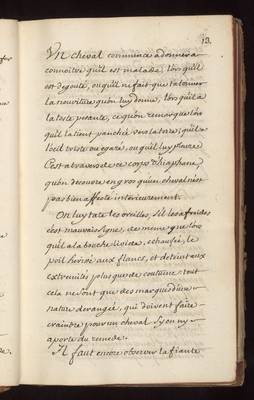 13.
Un cheval commence a donner a
connoitre qu'il est malade, lors qu'il
est degouté, ou qu'il ne fait que tatonner
la nouriture qu'on luy donne, lors qu'il a
la teste pesante, ce qu'on remarque lors
qu'il la tient panchée vers la terre; qu'il a
l'oeil triste ou egaré, ou qu'il luy pleure
C'est a travers de ce corps diaphane
qu'on decouvre en gros qu'un cheval n'est
pas bien affecté interieurement.
On luy tate les oreilles, s'il les a froides
c'est mauvais signe, de meme que lors
qu'il a la bouche livide, echaufée, le
poil herissé aux flancs, et deteint aux
extremités plus que de coutume: tout
cela ne sont que des marques d'une
nature derangée, qui doivent faire
craindre pour un cheval sy on n'y
aporte du remede.
Il faut encore observer la fiante